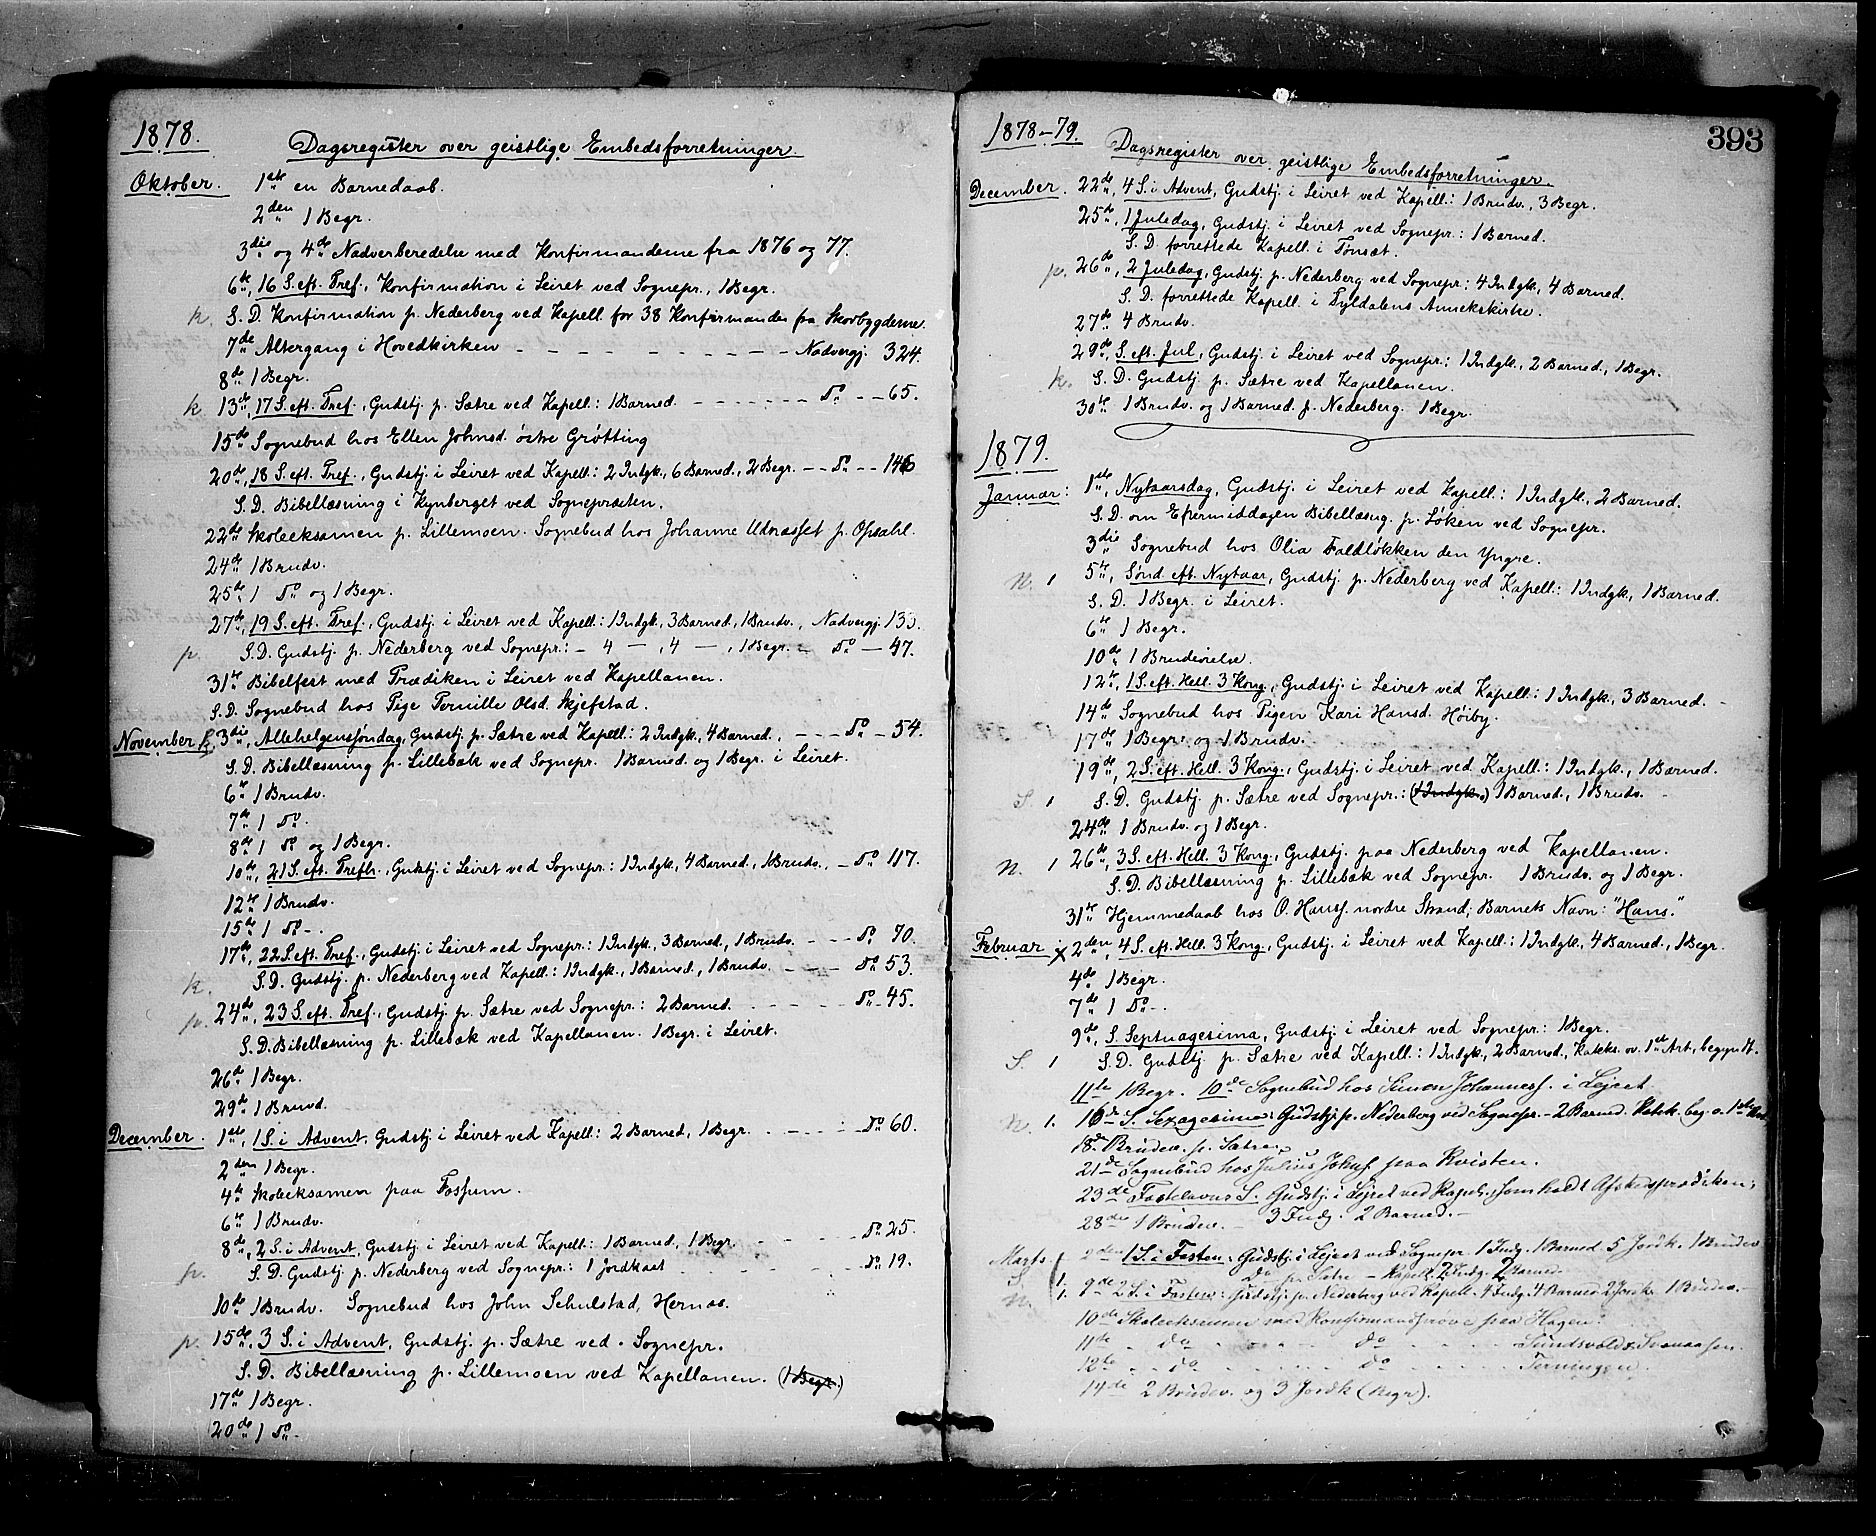 1878.
Dagsregister over geistlige Embedsforretninger.
Oktober. 1ste en Barnedaab.
2den 1 Begr.
3die og 4de Nadverberedelse med Konfirmanderne fra 1876 og 77.
6te, 16 S. eft. Tref., Konfirmation i Leiret ved Sognepr., 1 Begr.
k. S. D. Konfirmation p. Nederberg ved Kapell. for 38 Konfirmander fra Skovbygderne.
7de Altergang i Hovedkirken - - - - - - - - - Nadvergj. 324.
8de 1 Begr.
k. 13de, 17 S. eft. Tref., Gudstj. p. Sætre ved Kapell.: 1 Barned. - - - - - - - Do - - 65.
15de Sognebud hos Ellen Johnsd. østre Grøtting
20de, 18 S. eft. Tref., Gudstj. i Leiret ved Kapell: 2 Indgk., 6 Barned., 2 Begr. - - Do - - 146
S. D. Bibellæsning i Kynberget ved Sognepræsten.
22de Skoleeksamen p. Lillemoen. Sognebud hos Johanne Udnæsset p. Opsahl.
24de 1 Brudv.
25de 1 Do og 1 Begr.
27de, 19 S. eft. Tref., Gudstj. i Leiret ved Kapell.: 1 Indgk., 3 Barned., 1 Brudv., Nadvergj.
p. S. D. Gudstj. p. Nederberg ved Sognepr.: - 4 - , 4 - , 1 Begr. - Do - 47.
31te Bibelfest med Prædiken i Leiret ved Kapellanen.
S. D. Sognebud hos Pige Pernille Olsd. Skjefstad.
November k. 3die, Allehelgenssøndag, Gudstj. p. Sætre ved Kapell: 2 Indgk., 4 Barned., - - - Do - 54.
S. D. Bibellæsning p. Lillebæk ved Sognepr. 1 Barned. og 1 Begr. i Leiret.
6te 1 Brudv.
7de 1 Do.
8de 1 Do og 1 Begr.
10de, 21 S. eft. Trefh., Gudstj. i Leiret ved Sognepr.: 1 Indgk., 4 Barned., 1 Brudv., - Do - 117.
12te 1 Brudv.
15de 1 Do -.
17de, 22 S. eft. Tref., Gudstj. i Leiret ved Sognepr.: 1 Indgk., 3 Barned., 1 Brudv. - - - Do 70.
k. S. D. Gudstj. p. Nederberg ved Kapell.: 1 Indgk., 1 Barned., 1 Brudv. - - - - Do 53.
p. 24de, 23 S. eft. Tref., Gudstj. p. Sætre ved Sognepr.: 2 Barned. - - - - - Do - 45.
S. D. Bibellæsning p. Lillebæk ved Kapellanen. 1 Begr. i Leiret.
26de 1 Begr.
29de 1 Brudv.
December. 1ste, 1 S. i Advent, Gudstj. i Leiret ved Kapell: 2 Barned., 1 Begr. - - - - Do 60.
2den 1 Begr.
4de Skoleeksamen paa Fossum.
6te 1 Brudv.
8de, 2 S. i Advent, Gudstj. i Leiret ved Kapell: 1 Barned., 1 Begr. - - - - Do 25.
p. S. D. Gudstj. p. Nederberg ved Sognepr: 1 Jordkast - - - - - Do 19.
10de 1 Brudv. Sognebud hos John Schulstad, Hernæs.
p. 15de, 3 S. i Advent, Gudstj. p. Sætre ved Sognepr.
S. D. Bibellæsning p. Lillemoen ved Kapellanen. (1 Begr.)
17de 1 Begr.
20de 1 Do -
1878-79.
393
Dagsregister over geistlige Embedsforretninger.
December. 22de, 4 S. i Advent, Gudstj. i Leiret ved Kapell.: 1 Brudv., 3 Begr.
25de, 1 Juledag, Gudstj. i Leiret ved Sognepr.: 1 Barned.
S. D. forrettede Kapell. i Tønset.
p. 26de, 2 Juledag, Gudstj. p. Nederberg ved Sognepr: 4 Indgk., 4 Barned.
S. D. forrettede Kapell. i Tyldalens Annekskirke.
27de 4 Brudv.
29de, S. eft. Jul, Gudstj. i Leiret ved Sognepr: 1 Indgk., 2 Barned., 1 Begr.
k. S. D. Gudstj. p. Sætre ved Kapellanen.
30te 1 Brudv. og 1 Barned. p. Nederberg. 1 Begr.
1879.
Januar: 1ste, Nytaarsdag, Gudstj. i Leiret ved Kapell.: 1 Indgk., 2 Barned.
S. D. om Eftermiddagen Bibellæsng. p. Løken ved Sognepr.
3die Sognebud hos Olia Faldløkken den Yngre.
N. 1 5te, Sønd. eft. Nytaar, Gudstj. p. Nederberg ved Kapell: 1 Indgk., 1 Barned.
S. D. 1 Begr. i Leiret.
6te 1 Begr.
10de 1 Brudevielse.
12te, 1 S. eft. Hell. 3 Kong., Gudstj. i Leiret ved Kapell: 1 Indgk., 3 Barned. -
14de Sognebud hos Pigen Kari Hansd. Høiby.
17de 1 Begr. og 1 Brudv.
19de, 2 S. eft. Hell. 3 Kong., Gudstj. i Leiret ved Kapell: 1 Indgk., 1 Barned.
S. 1 S. D. Gudstj. p. Sætre ved Sognepr.: (1 Indgk.) 1 Barned., 1 Brudv. -
24de 1 Brudv. og 1 Begr.
N. 1 26de, 3 S. eft. Hell. 3 Kong., Gudstj. paa Nederberg ved Kapellanen.
S. D. Bibellæsning p. Lillebæk ved Sognepr. 1 Brudv. og 1 Begr.
31te Hjemmedaab hos O. Hanss. nordre Strand; Barnets Navn: "Hans."
Februar x 2den, 4 S. eft. Hell. 3 Kong., Gudstj. i Leiret ved Kapell: 1 Indgk., 4 Barned., 1 Begr.
4de 1 Begr.
7de 1 Do -.
9de, S. Septuagesima, Gudstj. i Leiret ved Sognepr: 1 Begr.
S. 1 S. D. Gudstj. p. Sætre ved Kapell.: 1 Indgk., 2 Barned., Katek. ov. 1ste Art. begyndt.
11te 1 Begr. 10de Sognebud hos Simen Johanness. i Lejret
N. 1. 16de S. Sexagesima: Gudstj. p. Nederberg ved Sognepr - 2 Barned. Katek. beg. o. 1ste
18de Brudev. p. Sætre.
21de Sognebud hos Julius Johns. paa Kvisten.
23de Fastelavns S. Gudstj. i Lejret ved Kapel., som holdt Afskedsprædiken;
28de 1 Brudev. - 3 Indg. 2 Barned. -
Marts 2den 1 S. i Fasten. Gudstj. i Lejret ved Sognepr. 1 Indg. 1 Barned. 5 Jordk. 1 Brudev
S. 1. Do p. Sætre - Kapell. 2 Indg. 2 Barned.
N. 1. 9de 2 S. i Fasten: Gudstj. p. Nederberg ved Kapell. 4 Indg. 4 Barned. 2 Jordk. 1 Brudev. -
10de Skoleeksamen med Konfirmandprøve paa Hagen.
11te - Do - - - - - Do - - - - Sundsvold
12te - - Do - - - - - Do - - - - Terningen.
14de 2 Brudev. og 3 Jordk (Begr).